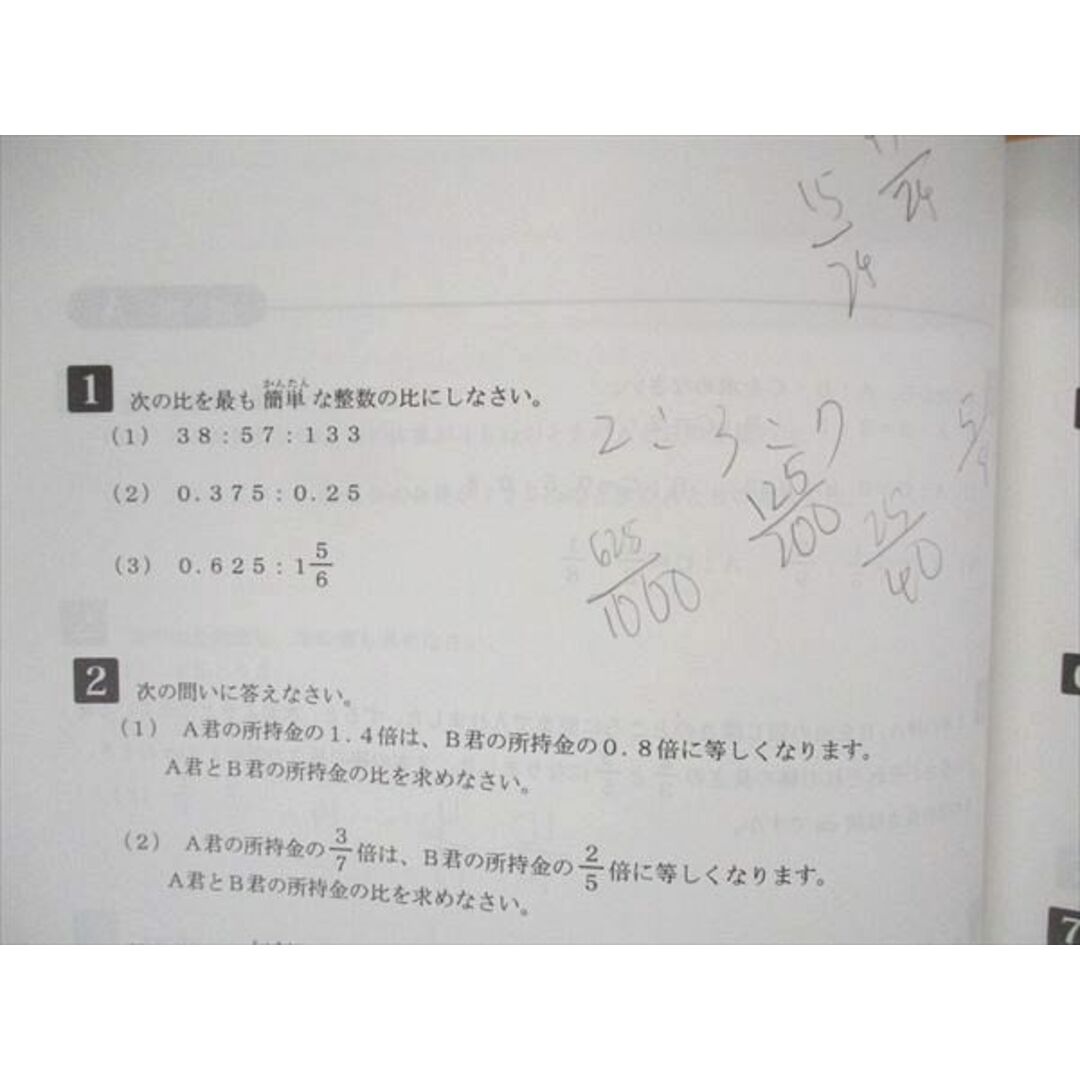 15/24
24
1 次の比を最も簡単な整数の比にしなさい。
かんたん
(1) 38:57:133
2:3:7
(2) 0.375:0.25
125/200
25/40
(3) 0.625:1 5/6
625/1000
2 次の問いに答えなさい。
(1) A君の所持金の1.4倍は、B君の所持金の0.8倍に等しくなります。
A君とB君の所持金の比を求めなさい。
(2) A君の所持金の3/7倍は、B君の所持金の2/5倍に等しくなります。
A君とB君の所持金の比を求めなさい。
7